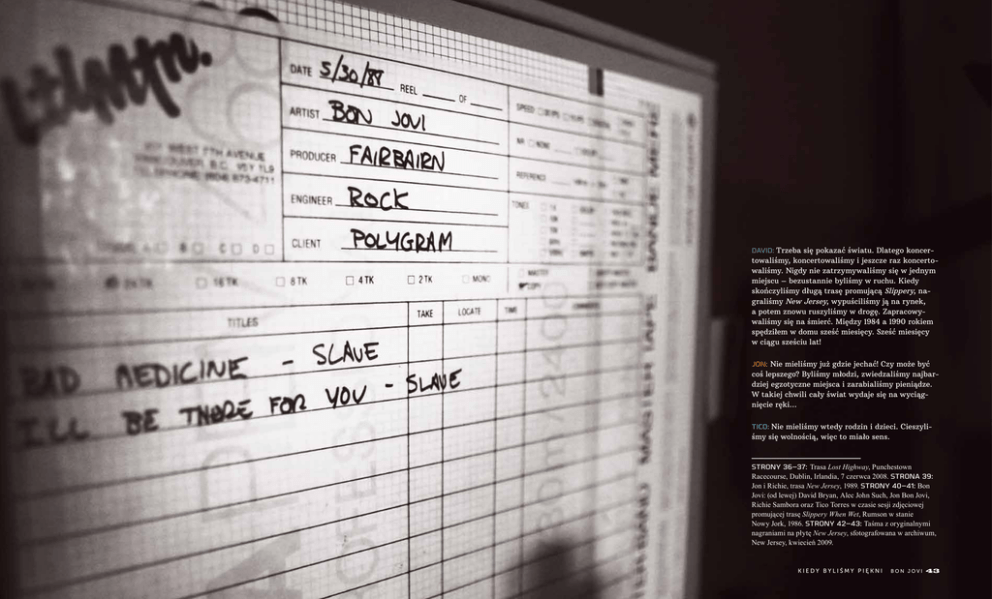 DATE 5/30/88 REEL OF
ARTIST BON JOVI
PRODUCER FAIRBAIRN
ENGINEER ROCK
CLIENT POLYGRAM
WEST 7TH AVENUE
VANCOUVER, B.C. V5Y 1L9
TELEPHONE (604) 873-4711
SPEED
REFERENCE
TONES
B C D
16 TK 8 TK 4 TK 2 TK MONO
TITLES TAKE LOCATE TIME
BAD MEDICINE - SLAVE
I'LL BE THERE FOR YOU - SLAVE
DAVID: Trzeba się pokazać światu. Dlatego koncer-
towaliśmy, koncertowaliśmy i jeszcze raz koncerto-
waliśmy. Nigdy nie zatrzymywaliśmy się w jednym
miejscu – bezustannie byliśmy w ruchu. Kiedy
skończyliśmy długą trasę promującą Slippery, na-
graliśmy New Jersey, wypuściliśmy ją na rynek,
a potem znowu ruszyliśmy w drogę. Zapracowy-
waliśmy się na śmierć. Między 1984 a 1990 rokiem
spędziłem w domu sześć miesięcy. Sześć miesięcy
w ciągu sześciu lat!
JON: Nie mieliśmy już gdzie jechać! Czy może być
coś lepszego? Byliśmy młodzi, zwiedzaliśmy najbar-
dziej egzotyczne miejsca i zarabialiśmy pieniądze.
W takiej chwili cały świat wydaje się na wyciąg-
nięcie ręki...
TICO: Nie mieliśmy wtedy rodzin i dzieci. Cieszyli-
śmy się wolnością, więc to miało sens.
STRONY 36–37: Trasa Lost Highway, Punchestown
Racecourse, Dublin, Irlandia, 7 czerwca 2008. STRONA 39:
Jon i Richie, trasa New Jersey, 1989. STRONY 40–41: Bon
Jovi: (od lewej) David Bryan, Alec John Such, Jon Bon Jovi,
Richie Sambora oraz Tico Torres w czasie sesji zdjęciowej
promującej trasę Slippery When Wet, Rumson w stanie
Nowy Jork, 1986. STRONY 42–43: Taśma z oryginalnymi
nagraniami na płytę New Jersey, sfotografowana w archiwum,
New Jersey, kwiecień 2009.
KIEDY BYLIŚMY PIĘKNI BON JOVI 43